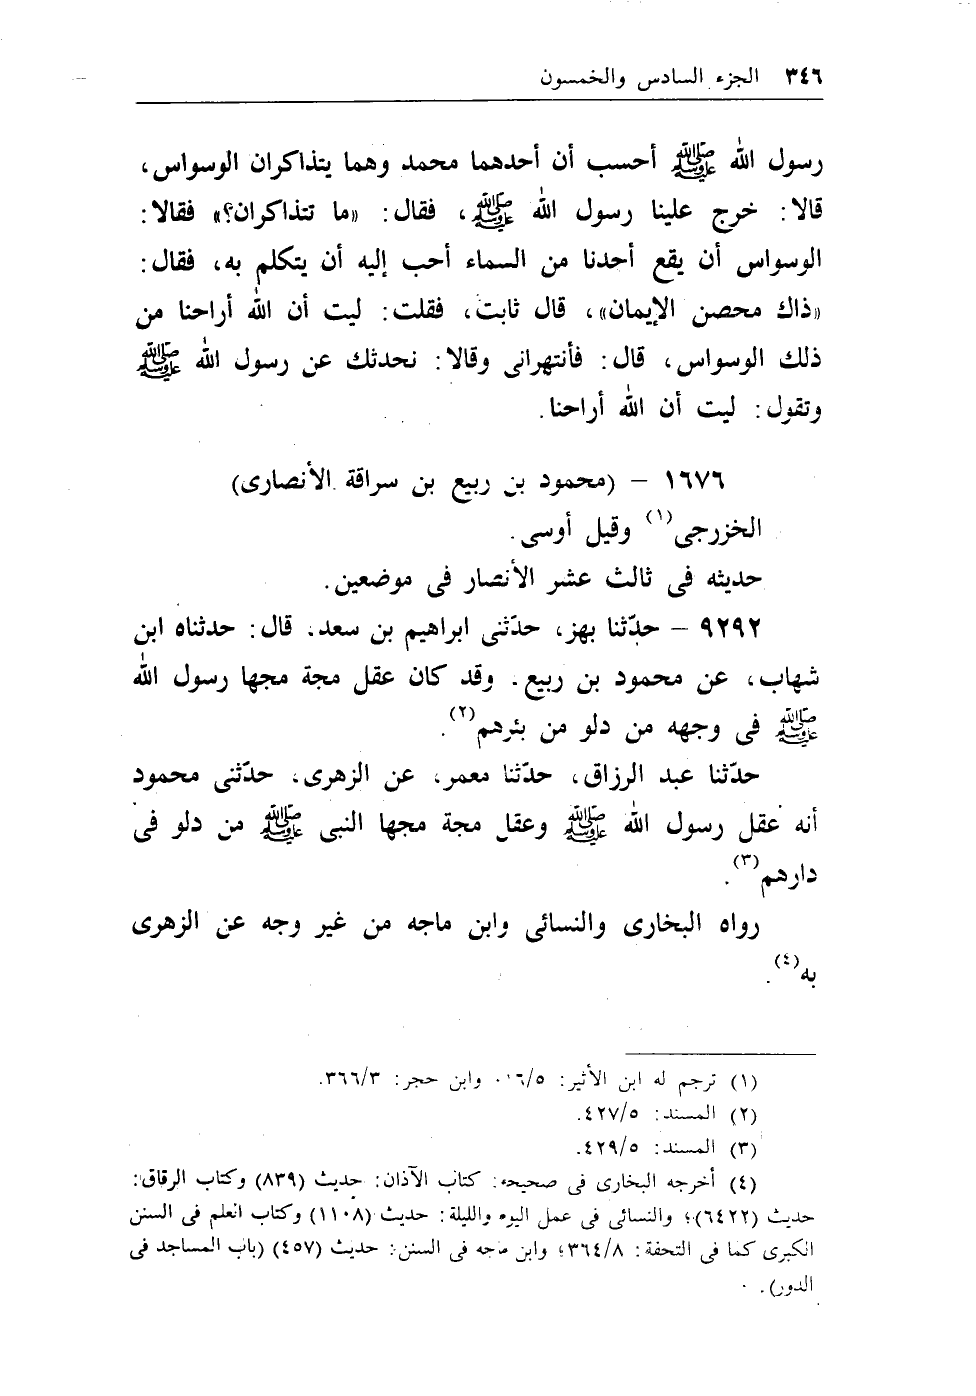 ٣٤٦ الجزء السادس والخمسون
رسول الله ﷺ أحسب أن أحدهما محمد وهما يتذاكران الوسواس،
قالا: خرج علينا رسول الله ﷺ، فقال: «ما تتذاكران؟» فقالا:
الوسواس أن يقع أحدنا من السماء أحب إليه أن يتكلم به، فقال:
«ذاك محصن الإيمان»، قال ثابت، فقلت: ليت أن الله أراحنا من
ذلك الوسواس، قال: فأنتهرانى وقالا: نحدثك عن رسول الله ﷺ
وتقول: ليت أن الله أراحنا.
١٦٧٦ – (محمود بن ربيع بن سراقة الأنصارى)
الخزرجى(١) وقيل أوسى.
حديثه فى ثالث عشر الأنصار فى موضعين.
٩٢٩٢ – حدّثنا بهز، حدّثنى ابراهيم بن سعد، قال: حدثناه ابن
شهاب، عن محمود بن ربيع. وقد كان عقل مجة مجها رسول الله
ﷺ فى وجهه من دلو من بئرهم(٢).
حدّثنا عبد الرزاق، حدّثنا معمر، عن الزهرى، حدّثنى محمود
أنه عقل رسول الله ﷺ وعقل مجة مجها النبى ﷺ من دلو فى
دارهم(٣).
رواه البخارى والنسائى وابن ماجه من غير وجه عن الزهرى
به(٤).
(١) ترجم له ابن الأثير: وابن حجر: ٣٦٦/٣.
(٢) المسند: ٤٢٧/٥.
(٣) المسند: ٤٢٩/٥.
(٤) أخرجه البخارى فى صحيحه: كتاب الآذان: حديث (٨٣٩) وكتاب الرقاق:
حديث (٦٤٢٢)؛ والنسائى فى عمل اليوم والليلة: حديث (١١٠٨) وكتاب العلم فى السنن
الكبرى كما فى التحفة: ٣٦٤/٨؛ وابن ماجه فى السنن: حديث (٤٥٧) (باب المساجد فى
الدور).